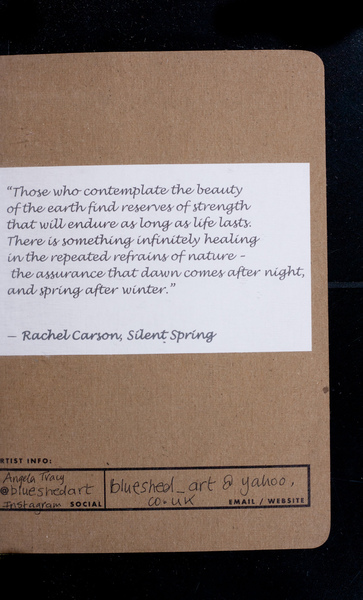 “Those who contemplate the beauty
of the earth find reserves of strength
that will endure as long as life lasts.
There is something infinitely healing
in the repeated refrains of nature -
the assurance that dawn comes after night,
and spring after winter.”
— Rachel Carson, Silent Spring
RTIST INFO:
Angela Tracy
@blueshedart
Instagram SOCIAL
blueshed_art @ yahoo.
co.uk EMAIL / WEBSITE